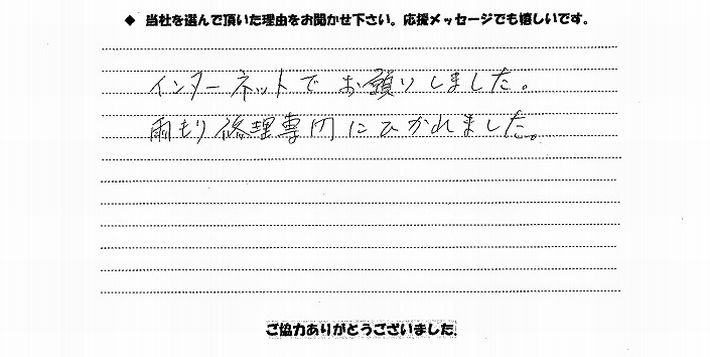 ◆ 当社を選んで頂いた理由をお聞かせ下さい。応援メッセージでも嬉しいです。
インターネットでお願いしました。
雨もり修理専門にひかれました。
ご協力ありがとうございました